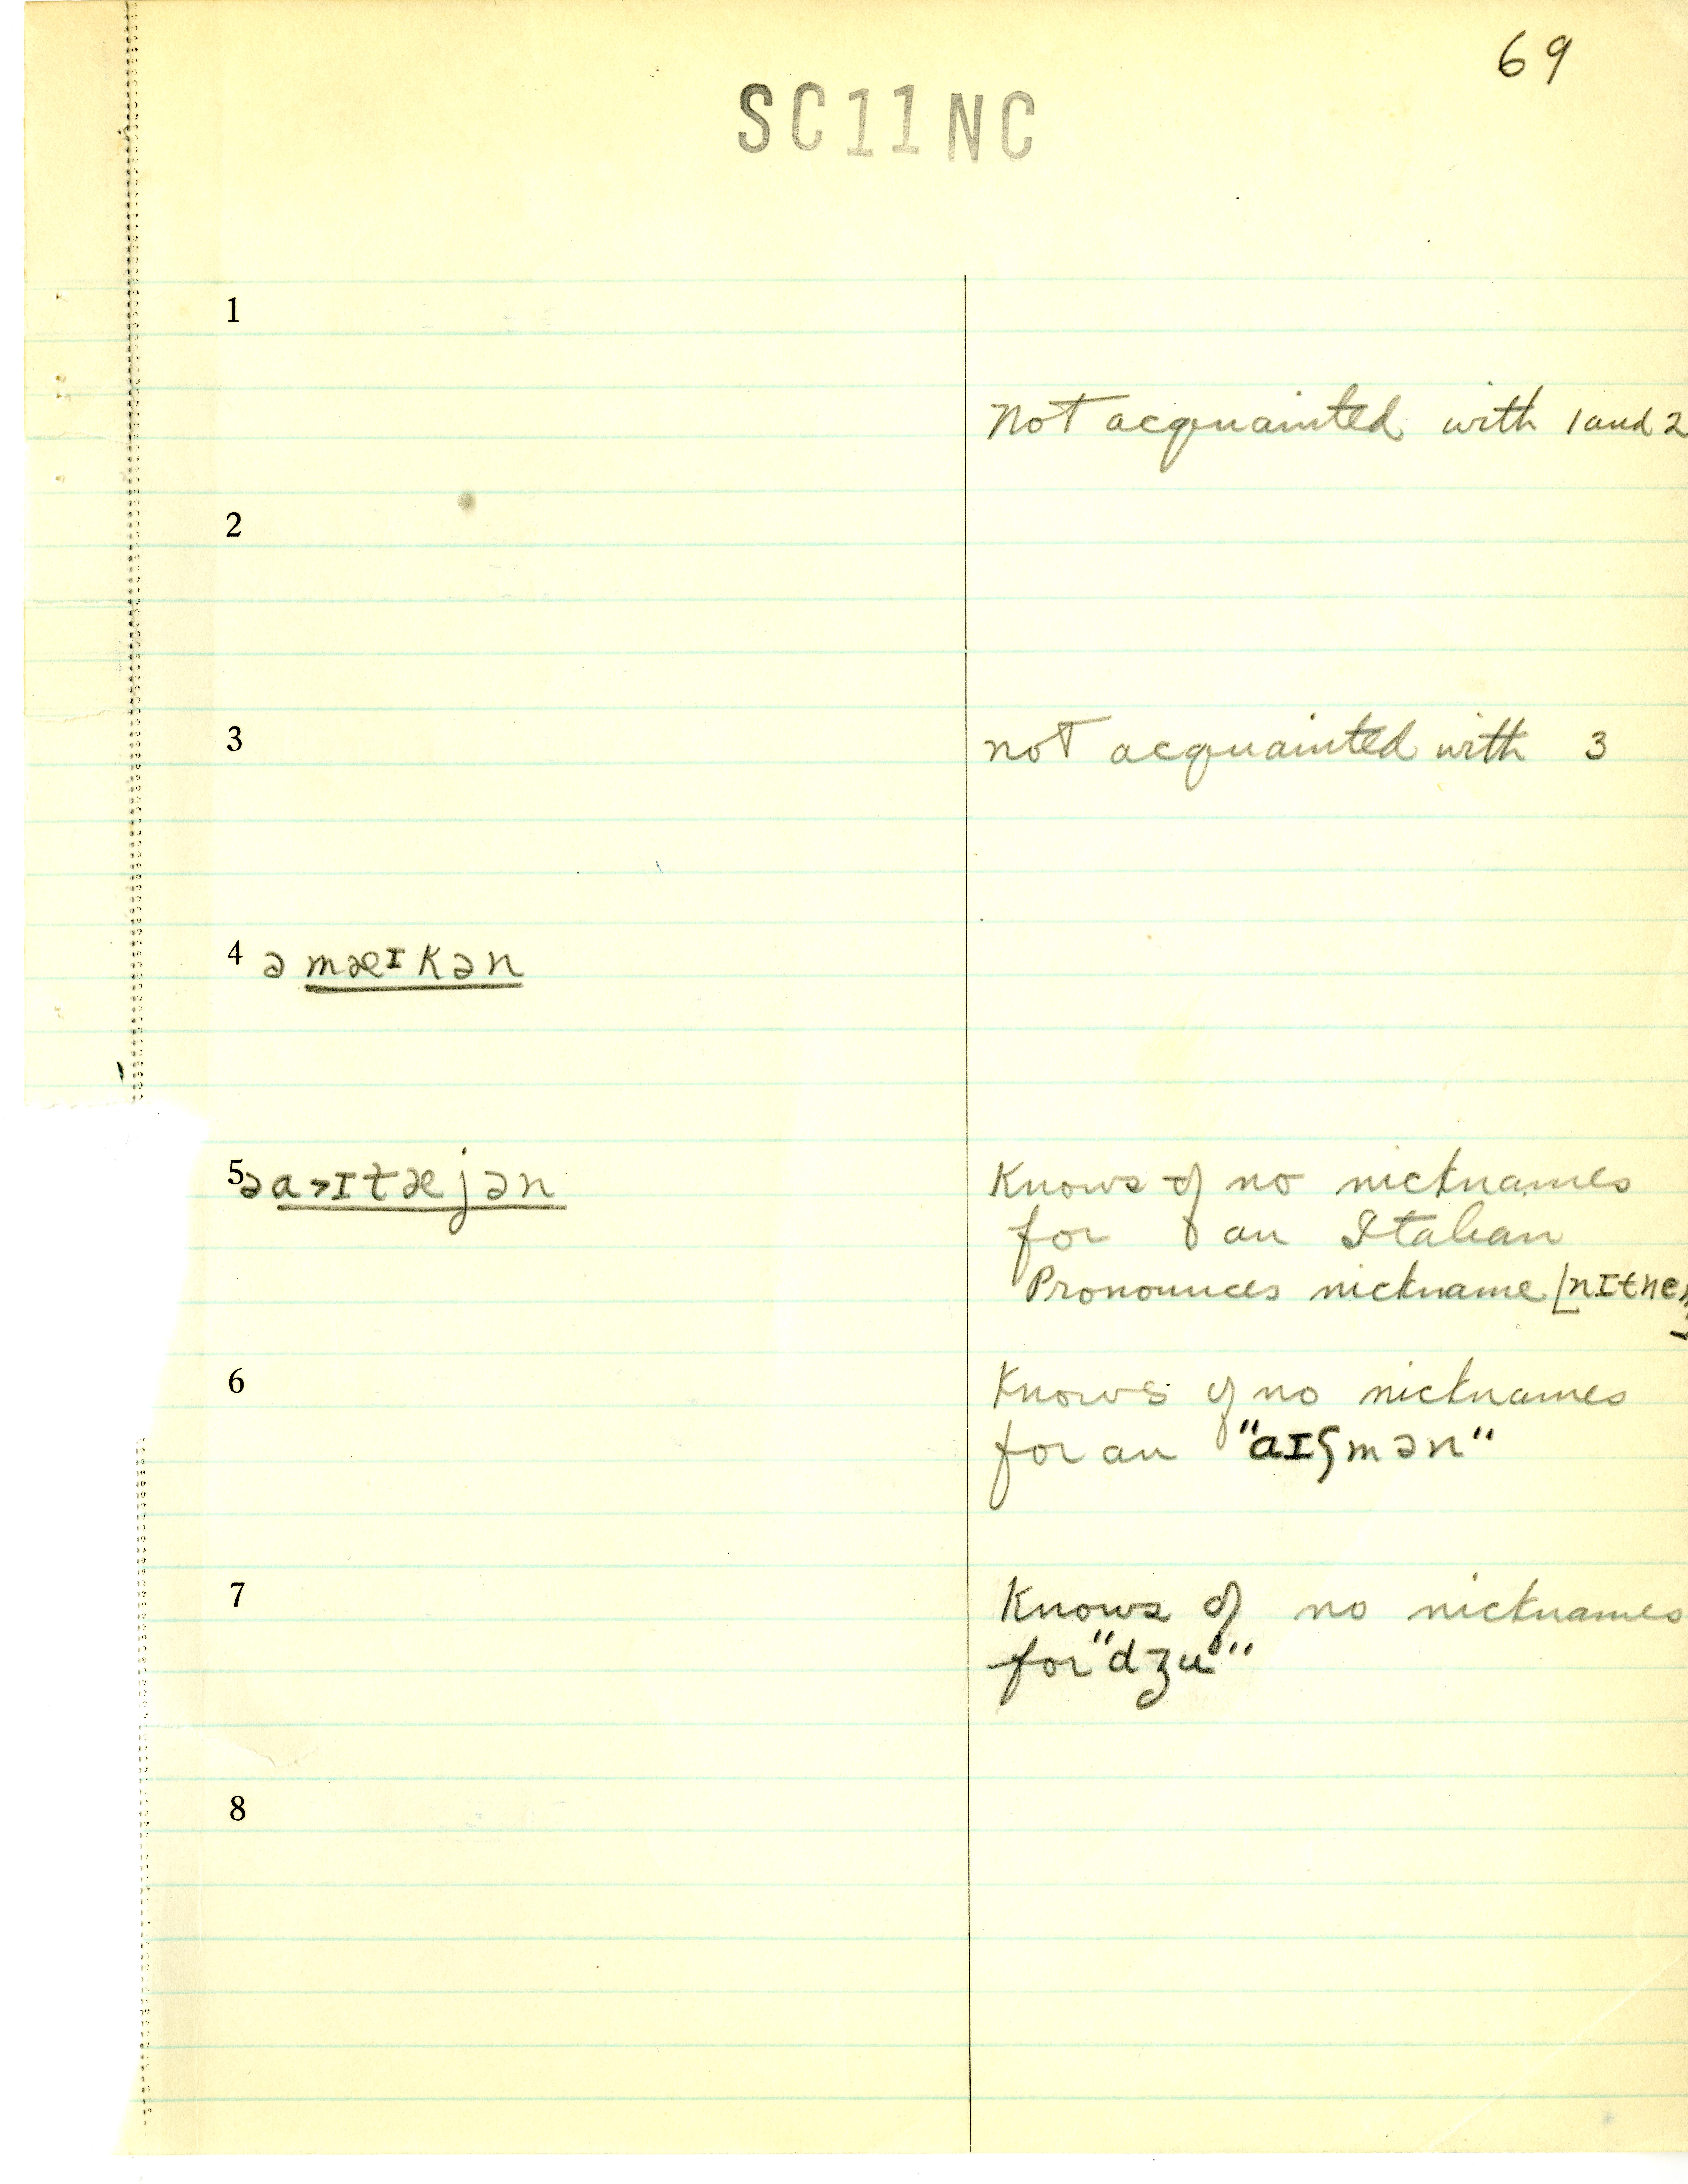 69
SC11NC
1
Not acquainted with 1 and 2
2
3 not acquainted with 3
4 ə mæɪkən
5 ə a˃ɪtæjən Knows of no nicknames
for an Italian
Pronounces nickname [nɪtne
6 Knows of no nicknames
for an "aɪʃmən"
7 Knows of no nicknames
for "dʒu"
8